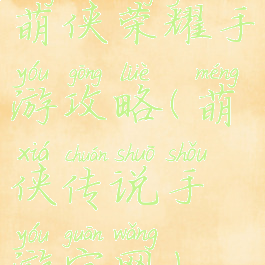 萌侠荣耀手
yóu gōng lüè méng
游攻略(萌
xiá chuán shuō shǒu
侠传说手
yóu guān wǎng
游官网)